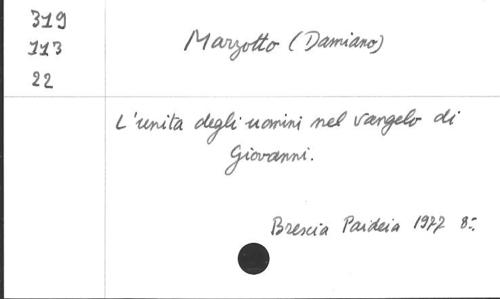 319
113
22
Marzotto (Damiano)
L'unita degli uomini nel vangelo di
Giovanni.
Brescia Paideia 1977 8º